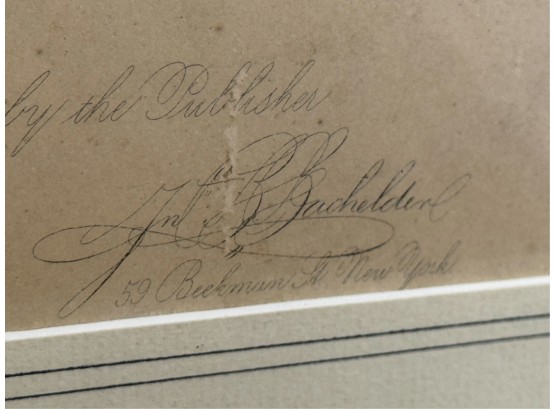 by the Publisher
Jno. B. Bachelder
59 Beekman St. New York